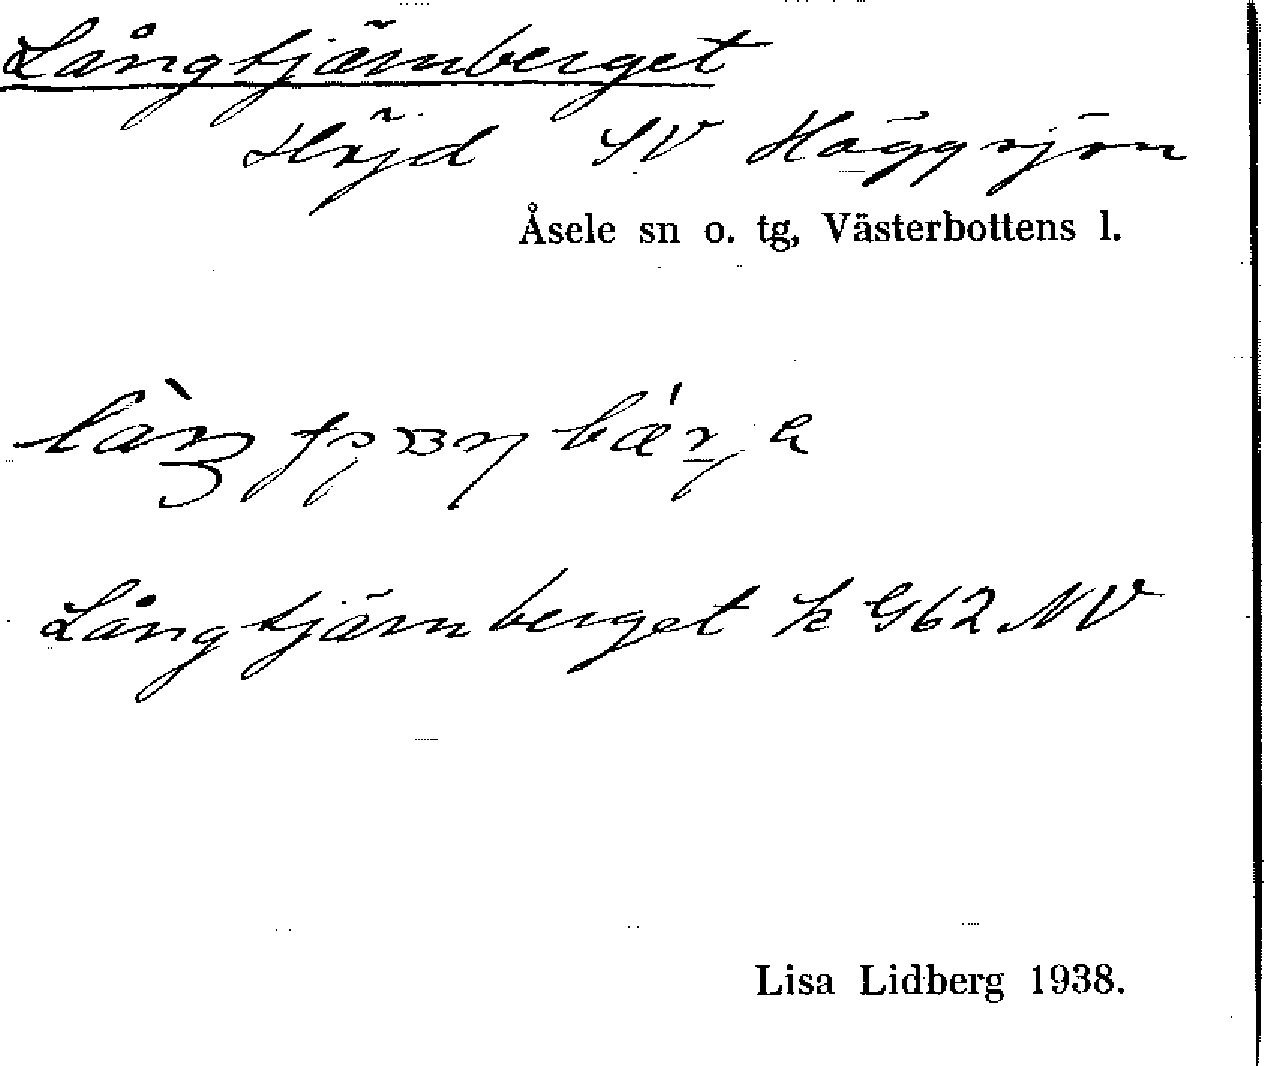 Långtjärnberget
Höjd SV Häggsjön
Åsele sn o. tg, Västerbottens l.
Långtjärnberget k G62 NV
Lisa Lidberg 1938.